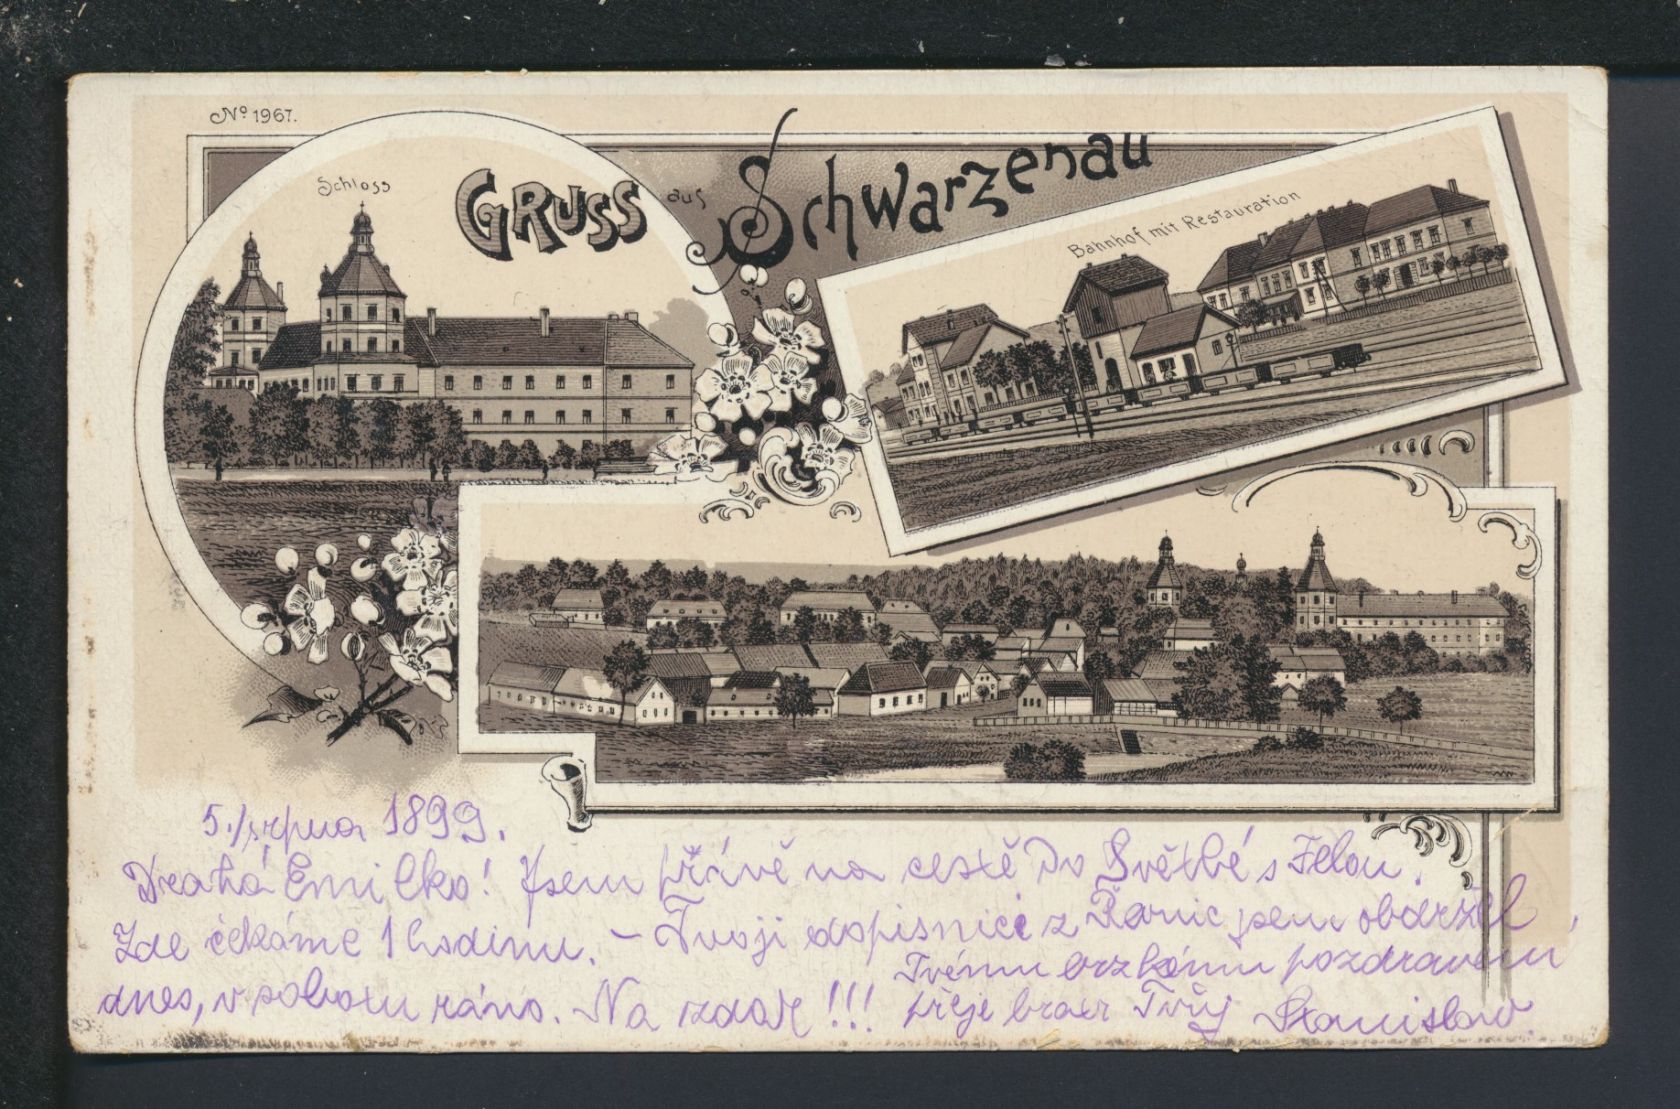 No 1967.
Schloss
GRUSS aus Schwarzenau
Bahnhof mit Restauration
5./srpna 1899.
Drahá Emilko! Jsem právě na cestě do Světlé s
Zde čekáme 1 hodinu. – Tvoji dopisnici z jsem obdržel
dnes, v sobotu ráno. Na zdar!!!
Tvému pozdravení
přeje bratr Tvůj Stanislav.